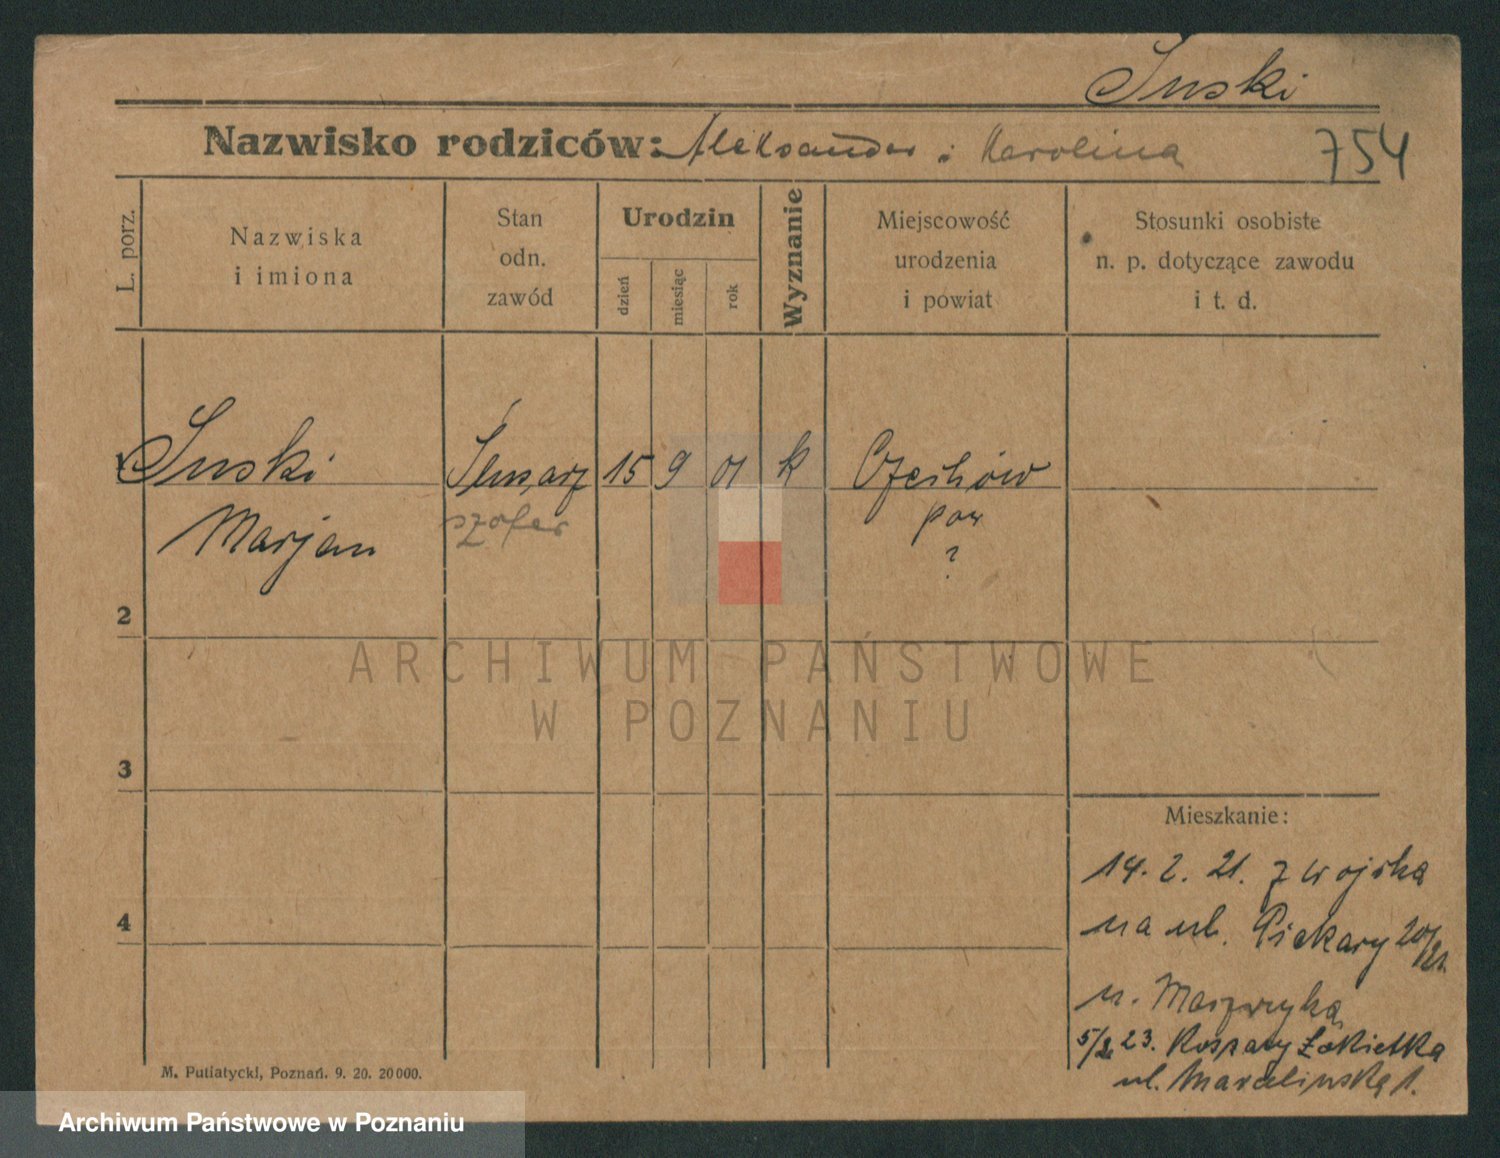 Suski
Nazwisko rodziców: Aleksander i Karolina
754
L. porz.
Nazwiska
i imiona
Stan
odn.
zawód
Urodzin
dzień
miesiąc
rok
Wyznanie
Miejscowość
urodzenia
i powiat
Stosunki osobiste
n. p. dotyczące zawodu
i t. d.
1 Suski Ślusarz 15 9 01 k Czechów
Marjan szofer pow
?
2
3
4
Mieszkanie:
14. 2. 21. z wojska
na ul. Piekary 20/21.
u.
5/2 23. Koszary Łokietka
ul.
M. Putiatycki, Poznań. 9. 20. 20000.
ARCHIWUM PAŃSTWOWE
W POZNANIU
Archiwum Państwowe w Poznaniu